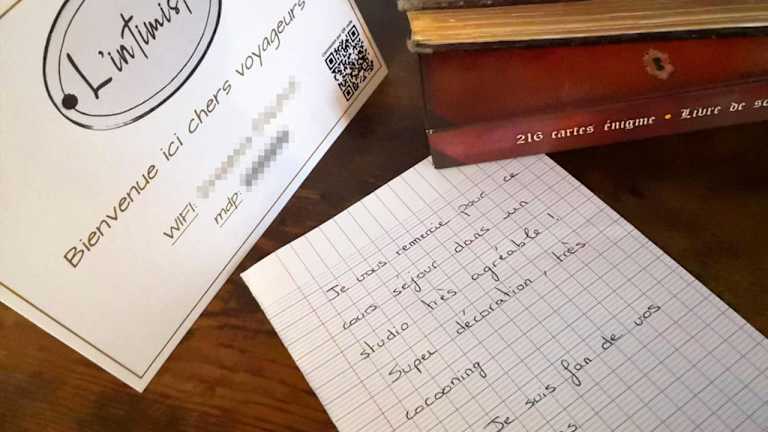 L'intimis
Bienvenue ici chers voyageurs
WIFI:
mdp:
216 cartes énigme • Libre de
Je vous remercie pour ce
cours séjour dans un
studio très agréable !
Super décoration, très
cocooning
Je suis fan de vos